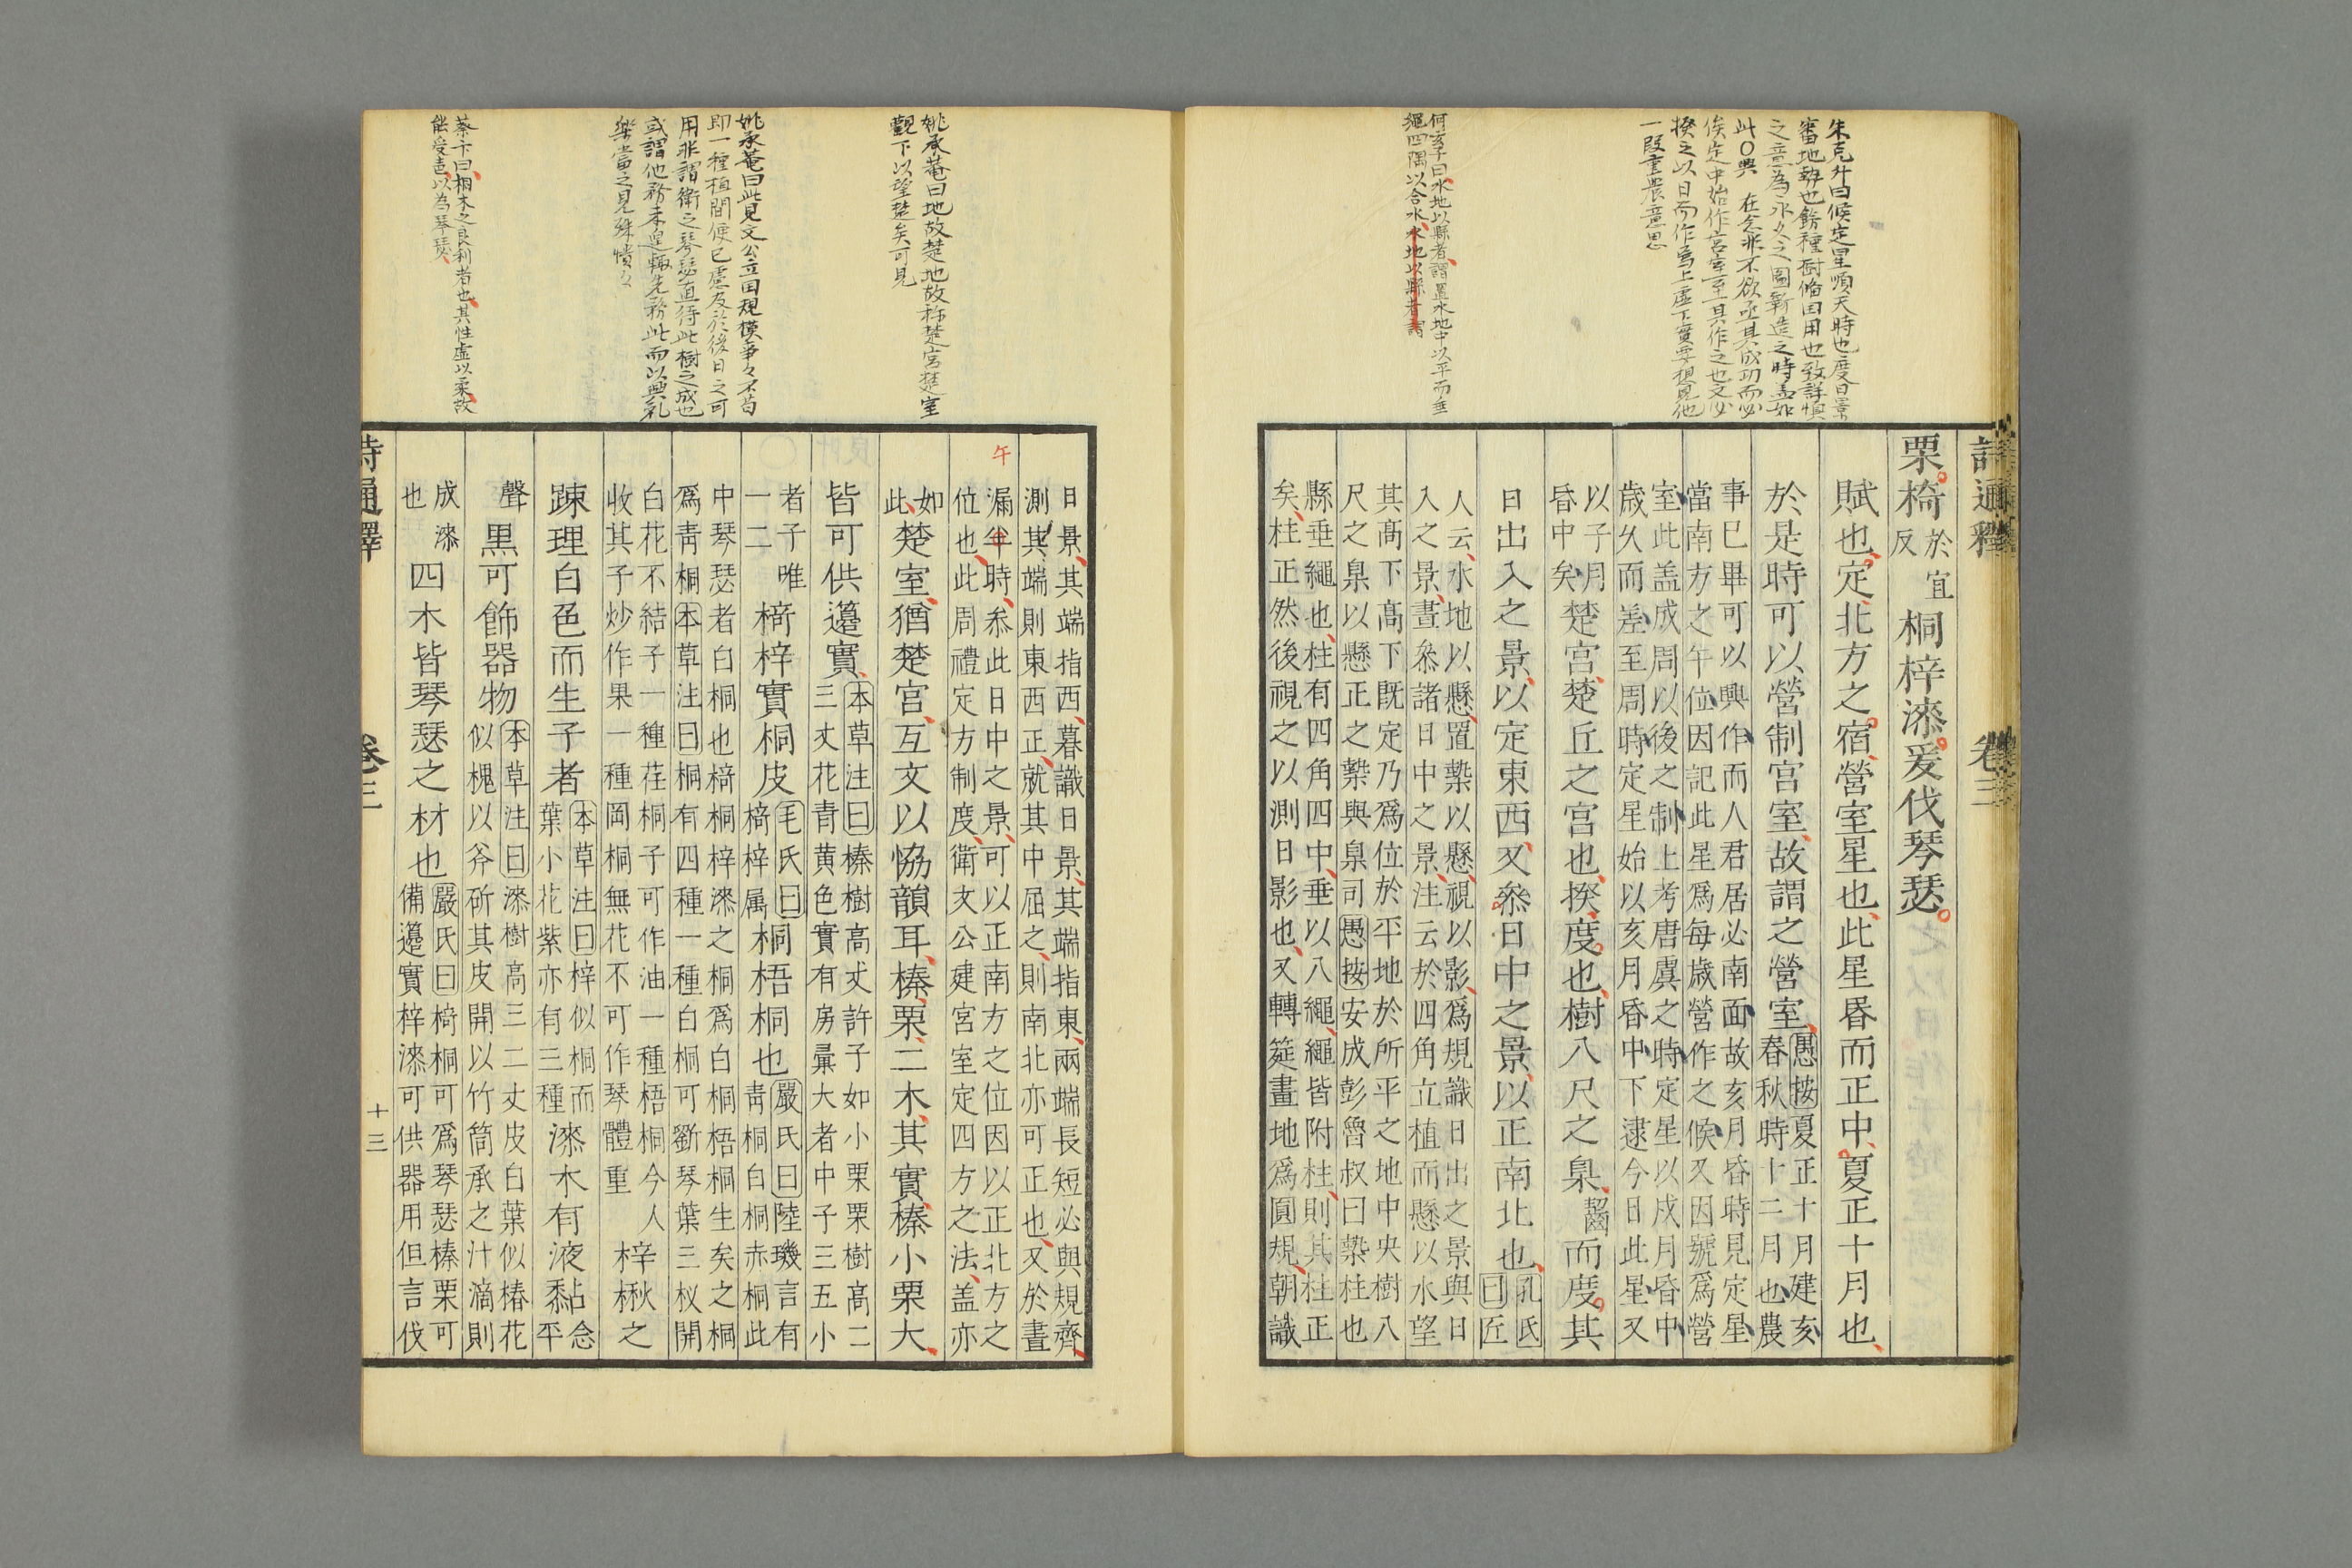 詩通釋
卷三
朱克升曰候定星順天時也度日景
審地勢也餘種樹脩田用也致詳慎
之意為永久之圖新造之時盖如
此〇興 在念非不欲亟其成功而必
俟定中始作宮室至其作之也又必
揆之以日而作焉上虛下實要想見他
一段重農意思
何玄子曰水地以縣者謂置水地中以平而垂
繩四隅以合水水地以縣者謂
栗椅於宜反桐梓漆爰伐琴瑟
賦也定北方之宿營室星也此星昏而正中夏正十月也
於是時可以營制宫室故謂之營室愚按夏正十月建亥
春秋時十二月也農
事已畢可以興作而人君居必南面故亥月昏時見定星
當南方之午位因記此星爲每歲營作之候又因號爲營
室此盖成周以後之制上考唐虞之時定星以戌月昏中
歲久而差至周時定星始以亥月昏中下逮今日此星又
以子月
昏中矣楚宫楚丘之宫也揆度也樹八尺之臬而度其
日出入之景以定東西又叅日中之景以正南北也孔氏
曰匠
人云水地以懸置槷以懸視以影爲規識日出之景與日
入之景晝叅諸日中之景注云於四角立植而懸以水望
其高下高下既定乃爲位於平地於所平之地中央樹八
尺之臬以懸正之槷與臬司愚按安成彭魯叔曰槷柱也
縣垂繩也柱有四角四中垂以八繩繩皆附柱則其柱正
矣柱正然後視之以測日影也又轉筵畫地爲圓規朝識
姚承菴曰地故楚地故称楚宮楚室
觀下以望楚矣可見
姚承菴曰此見文公立国規模事々不苟
即一種植間便已慮及於後日之可
用非謂衛之琴瑟直待此樹之成也
或謂他務未遑輙先務此而以興礼
樂當之見殊憒々
蔡卞曰桐木之良利者也其性虛以柔故
能受音以為琴瑟
日景其端指西暮識日景其端指東兩端長短必與規齊
測其端則東西正就其中屈之則南北亦可正也又於晝
午
漏半時叅此日中之景可以正南方之位因以正北方之
位也此周禮定方制度衛文公建宮室定四方之法盖亦
如
此楚室猶楚宫互文以恊韻耳榛栗二木其實榛小栗大
皆可供籩實本草注曰榛樹高丈許子如小栗栗樹高二
三丈花青黄色實有房彙大者中子三五小
者子唯
一二椅梓實桐皮毛氏曰
椅梓属桐梧桐也嚴氏曰陸璣言有
靑桐白桐赤桐此
中琴瑟者白桐也椅桐梓漆之桐爲白桐梧桐生矣之桐
爲靑桐本草注曰桐有四種一種白桐可斲琴葉三杈開
白花不結子一種荏桐子可作油一種梧桐今人
收其子炒作果一種岡桐無花不可作琴體重梓楸之
踈理白色而生子者本草注曰梓似桐而
葉小花紫亦有三種漆木有液黏念
平
聲黒可飾器物本草注曰漆樹高三二丈皮白葉似椿花
似槐以斧斫其皮開以竹筒承之汁滴則
成漆
也四木皆琴瑟之材也嚴氏曰椅桐可爲琴瑟榛栗可
備籩實梓漆可供器用但言伐
詩通釋
卷三
十三